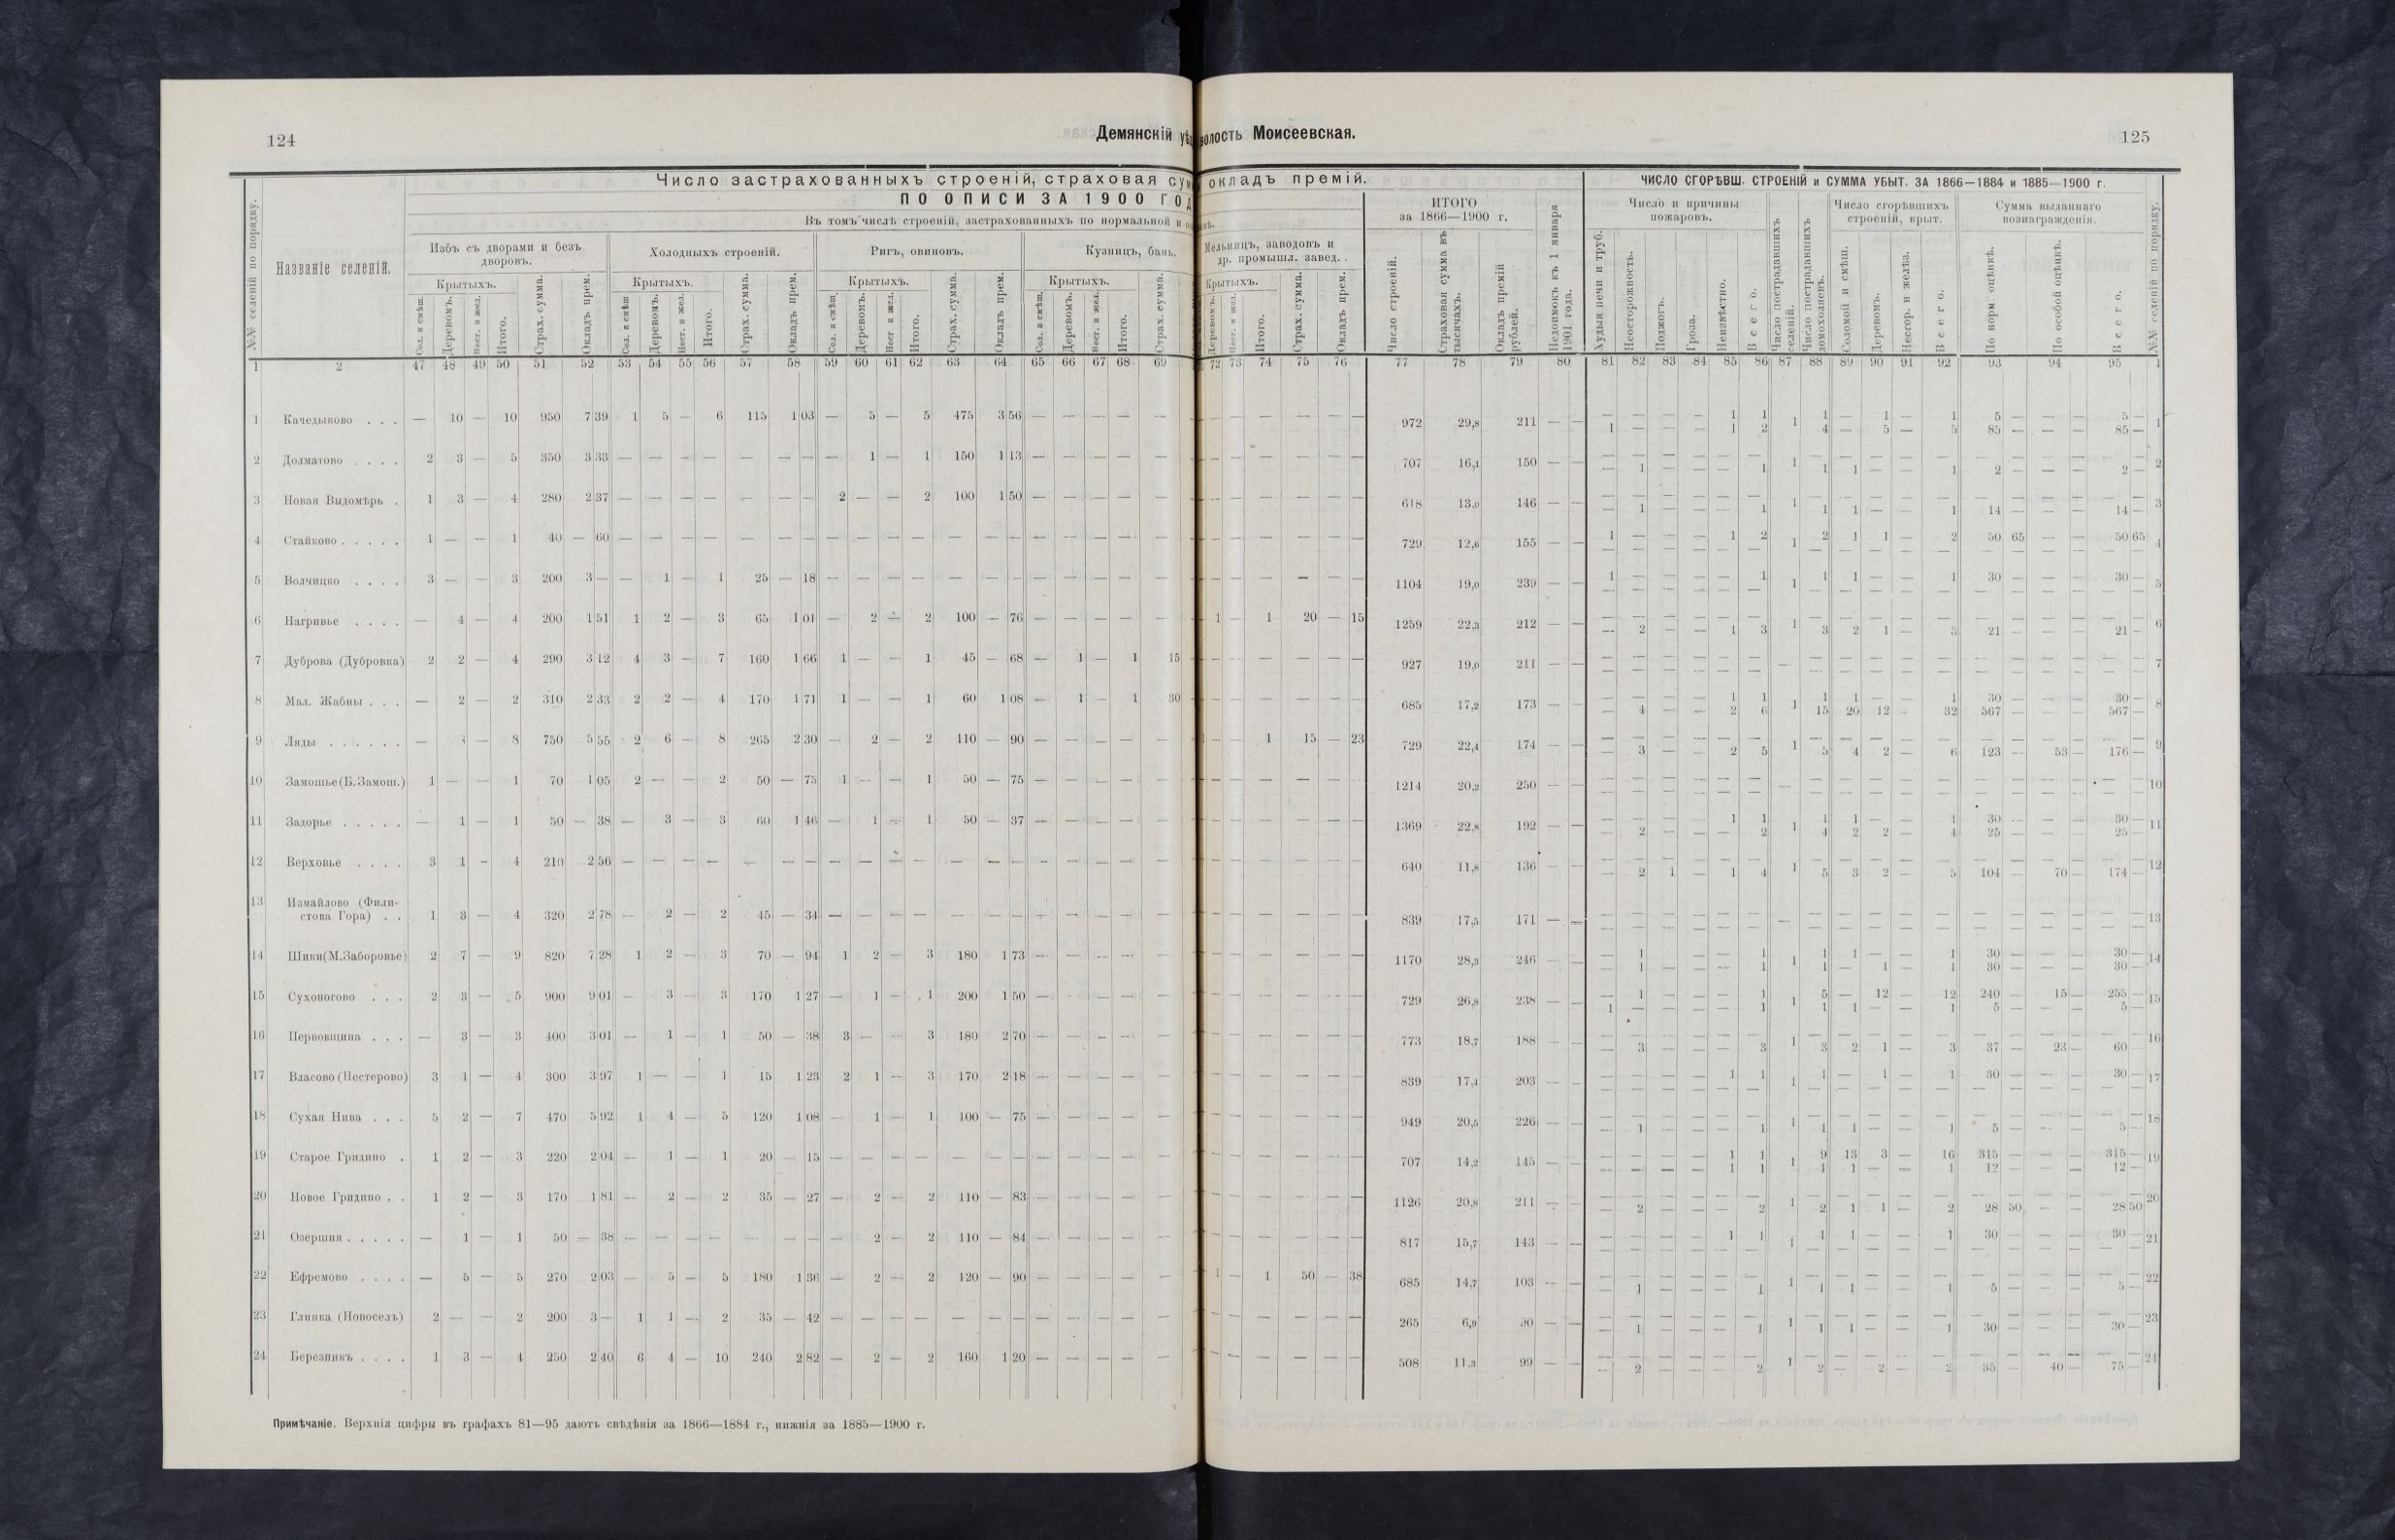 124
Демянскій
волость Моисеевская.
125
Число застрахованныхъ строеній, страховая
окладъ премій.
ЧИСЛО СГОРѢВШ. СТРОЕНІЙ и СУММА УБЫТ. ЗА 1866—1884 и 1885—1900 г.
ПО ОПИСИ ЗА 1900
Въ томъ числѣ строеній, застрахованныхъ по нормальной и
ИТОГО
за 1866—1900 г.
Число и причины пожаровъ.
Число сгорѣвшихъ строеній, крыт.
Сумма выданнаго вознагражденія.
№№ селеній по порядку.
Названіе селеній.
Избъ съ дворами и безъ дворовъ.
Холодныхъ строеній.
Ригъ, овиновъ.
Кузницъ, бань.
Мельницъ, заводовъ и др. промышл. завед.
Крытыхъ. Крытыхъ. Крытыхъ. Крытыхъ. Крытыхъ.
Сол. и смѣш. Деревомъ. Несг. и жел. Итого. Страх. сумма. Окладъ прем.
Сол. и смѣш Деревомъ. Несг. и жел. Итого. Страх. сумма. Окладъ прем.
Сол. и смѣш. Деревомъ. Несг и жел. Итого. Страх. сумма. Окладъ прем.
Сол. и смѣш. Деревомъ. Несг. и жел. Итого. Страх. сумма.
Деревомъ. Несг. и жел. Итого. Страх. сумма. Окладъ прем.
Число строеній. Страховая сумма въ тысячахъ. Окладъ премій рублей. Недоимокъ къ 1 января 1901 года.
Худыя печи и труб. Неосторожность. Поджогъ. Гроза. Неизвѣстно. Всего.
Число пострадавшихъ селеній. Число пострадавшихъ домохозяевъ.
Соломой и смѣш. Деревомъ. Несгор. и желѣз. Всего.
По норм оцѣнкѣ. По особой оцѣнкѣ. Всего. №№ селеній по порядку.
1 2 47 48 49 50 51 52 53 54 55 56 57 58 59 60 61 62 63 64 65 66 67 68 69 72 73 74 75 76 77 78 79 80 81 82 83 84 85 86 87 88 89 90 91 92 93 94 95 1
1 Качедыково . . . — 10 — 10 950 7 39 1 5 — 6 115 1 03 — 5 — 5 475 3 56 — — — — — — — — — — 972 29,8 211 — —
— — — — 1 1 1 1 — 1 — 1 5 — — — 5 — 1
1 — — — 1 2 4 — 5 — 5 85 — — — 85 —
2 Долматово . . . . 2 3 — 5 350 3 33 — — — — — — — — 1 — 1 150 1 13 — — — — — — — — — — 707 16,1 150 — —
— 1 — — — 1 1 1 1 — — 1 2 — — — 2 — 2
3 Новая Выдомѣрь . 1 3 — 4 280 2 37 — — — — — — — 2 — — 2 100 1 50 — — — — — — — — — — 618 13,0 146 — —
— 1 — — — 1 1 1 1 — — 1 14 — — — 14 — 3
4 Стайково . . . . . 1 — — 1 40 — 60 — — — — — — — — — — — — — — — — — — — — — — — — 729 12,6 155 — —
1 — — — 1 2 1 2 1 1 — 2 50 65 — — 50 65 4
5 Волчицко . . . . 3 — — 3 200 3 — — 1 — 1 25 — 18 — — — — — — — — — — — — — — — — — 1104 19,0 239 — —
1 — — — — 1 1 1 1 — — 1 30 — — — 30 — 5
6 Нагривье . . . . — 4 — 4 200 1 51 1 2 — 3 65 1 01 — 2 — 2 100 — 76 — — — — — 1 — 1 20 — 15 1259 22,3 212 — —
— 2 — — 1 3 1 3 2 1 — 3 21 — — — 21 — 6
7 Дуброва (Дубровка) 2 2 — 4 290 3 12 4 3 — 7 160 1 66 1 — — 1 45 — 68 — 1 — 1 15 — — — — — — 927 19,0 211 — — 7
8 Мал. Жабны . . . — 2 — 2 310 2 33 2 2 — 4 170 1 71 1 — — 1 60 1 08 — 1 — 1 30 — — — — — — 685 17,2 173 — —
— — — — 1 1 1 1 1 — — 1 30 — — — 30 — 8
— 4 — — 2 6 15 20 12 — 32 567 — — — 567 —
9 Ляды . . . . . . — 8 750 5 55 2 6 — 8 265 2 30 — 2 — 2 110 — 90 — — — — — — 1 15 — 23 729 22,4 174 — —
— 3 — — 2 5 1 5 4 2 — 6 123 — 53 — 176 — 9
10 Замошье (Б. Замош.) 1 — — 1 70 1 05 2 — — 2 50 — 75 1 — — 1 50 — 75 — — — — — — — — — — — 1214 20,2 250 — — 10
11 Задорье . . . . . — 1 — 1 50 — 38 — 3 — 3 60 1 46 — 1 — 1 50 — 37 — — — — — — — — — — — 1369 22,8 192 — —
— — — — 1 1 1 1 1 — — 1 30 — — — 30 — 11
— 2 — — — 2 4 2 2 — 4 25 — — — 25 —
12 Верховье . . . . 3 1 — 4 210 2 56 — — — — — — — — — — — — — — — — — — — — — — — — — 640 11,8 136 — —
— 2 1 — 1 4 1 5 3 2 — 5 104 — 70 — 174 — 12
13 Измайлово (Фили-
стова Гора) . . 1 3 — 4 320 2 78 — 2 — 2 45 — 34 — — — — — — — — — — — — — — — — — — 839 17,5 171 — — 13
14 Шики (М. Заборовье) 2 7 — 9 820 7 28 1 2 — 3 70 — 94 1 2 — 3 180 1 73 — — — — — — — — — — — 1170 28,3 246 — —
— 1 — — — 1 1 1 1 — — 1 30 — — — 30 — 14
— 1 — — — 1 1 — 1 — 1 30 — — — 30 —
15 Сухоногово . . . 2 3 — 5 900 9 01 — 3 — 3 170 1 27 — 1 — 1 200 1 50 — — — — — — — — — — — 729 26,8 238 — —
— 1 — — — 1 1 5 — 12 — 12 240 — 15 — 255 — 15
1 — — — — 1 1 1 — — 1 5 — — — 5 —
16 Первовщина . . . — 3 — 3 400 3 01 — 1 — 1 50 — 38 3 — — 3 180 2 70 — — — — — — — — — — — 773 18,7 188 — —
— 3 — — — 3 1 3 2 1 — 3 37 — 23 — 60 — 16
17 Власово (Нестерово) 3 1 — 4 300 3 97 1 — — 1 15 1 23 2 1 — 3 170 2 18 — — — — — — — — — — — 839 17,4 203 — —
— — — — 1 1 1 1 — 1 — 1 30 — — — 30 — 17
18 Сухая Нива . . . 5 2 — 7 470 5 92 1 4 — 5 120 1 08 — 1 — 1 100 — 75 — — — — — — — — — — — 949 20,5 226 — —
— 1 — — — 1 1 1 1 — — 1 5 — — — 5 — 18
19 Старое Гридино . 1 2 — 3 220 2 04 — 1 — 1 20 — 15 — — — — — — — — — — — — — — — — — — 707 14,2 145 — —
— — — — 1 1 1 9 13 3 — 16 315 — — — 315 — 19
— — — — 1 1 1 1 — — 1 12 — — — 12 —
20 Новое Гридино . . 1 2 — 3 170 1 81 — 2 — 2 35 — 27 — 2 — 2 110 — 83 — — — — — — — — — — — 1126 20,8 211 — —
— 2 — — — 2 1 2 1 1 — 2 28 50 — — 28 50 20
21 Озершня . . . . . — 1 — 1 50 — 38 — — — — — — — — 2 — 2 110 — 84 — — — — — — — — — — — 817 15,7 143 — —
— — — — 1 1 1 1 1 — — 1 30 — — — 30 — 21
22 Ефремово . . . . — 5 — 5 270 2 03 — 5 — 5 180 1 36 — 2 — 2 120 — 90 — — — — — 1 — 1 50 — 38 685 14,7 103 — —
— 1 — — — 1 1 1 1 — — 1 5 — — — 5 — 22
23 Глинка (Новоселъ) 2 — — 2 200 3 — 1 1 — 2 35 — 42 — — — — — — — — — — — — — — — — — — 265 6,9 — —
— 1 — — — 1 1 1 1 — — 1 30 — — — 30 — 23
24 Березникъ . . . . 1 3 — 4 250 2 40 6 4 — 10 240 2 82 — 2 — 2 160 1 20 — — — — — — — — — — — 508 11,3 99 — —
— 2 — — — 2 1 2 — 2 — 2 35 — 40 — 75 — 24
Примѣчаніе. Верхнія цифры въ графахъ 81—95 даютъ свѣдѣнія за 1866—1884 г., нижнія за 1885—1900 г.